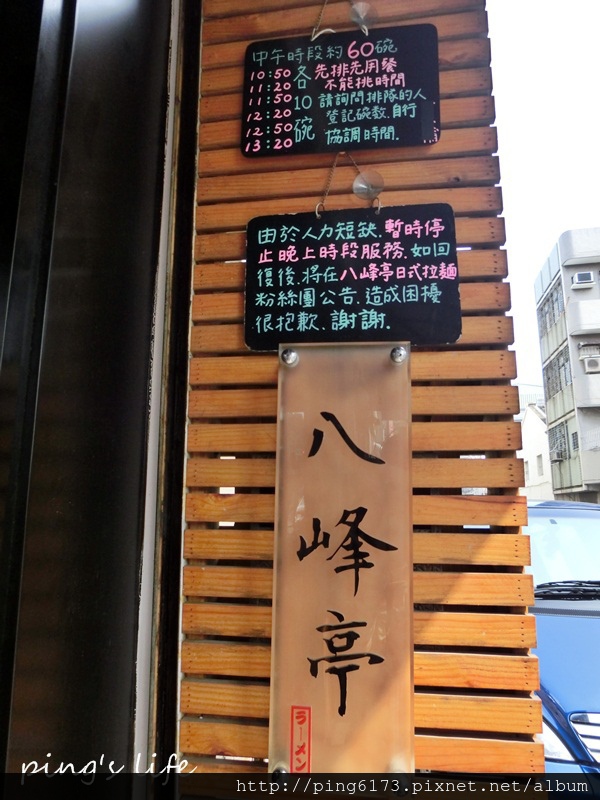 中午時段約60碗
10:50 各 先排先用餐
11:20 不能挑時間
11:50 10 請詢問排隊的人
12:20 登記碗數.自行
12:50 碗 協調時間.
13:20
由於人力短缺.暫時停
止晚上時段服務.如回
復後.將在八峰亭日式拉麵
粉絲團公告.造成困擾
很抱歉.謝謝.
八
峰
亭
ラーメン
ping's life
http://ping6173.pixnet.net/album